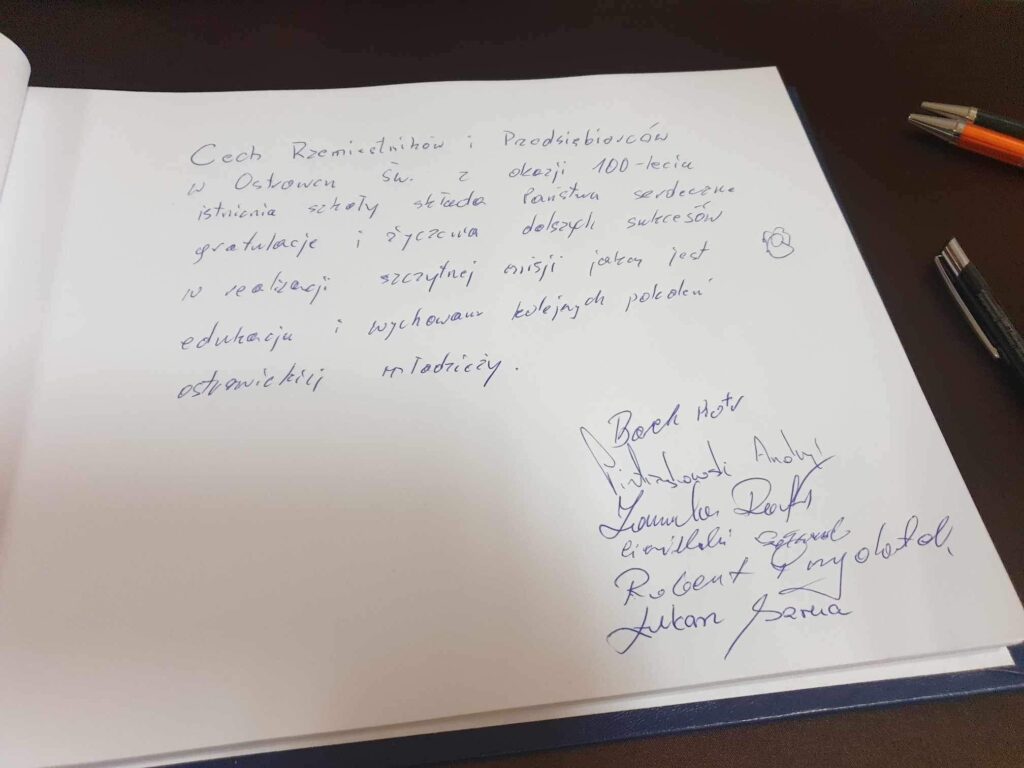 Cech Rzemieślników i Przedsiębiorców
w Ostrowcu Św. z okazji 100-lecia
istnienia szkoły składa Państwu serdeczne
gratulacje i życzenia dalszych sukcesów
w realizacji szczytnej misji jaką jest
edukacja i wychowanie kolejnych pokoleń
ostrowieckiej młodzieży.
Piotr
Andrzej
Robert
Łukasz